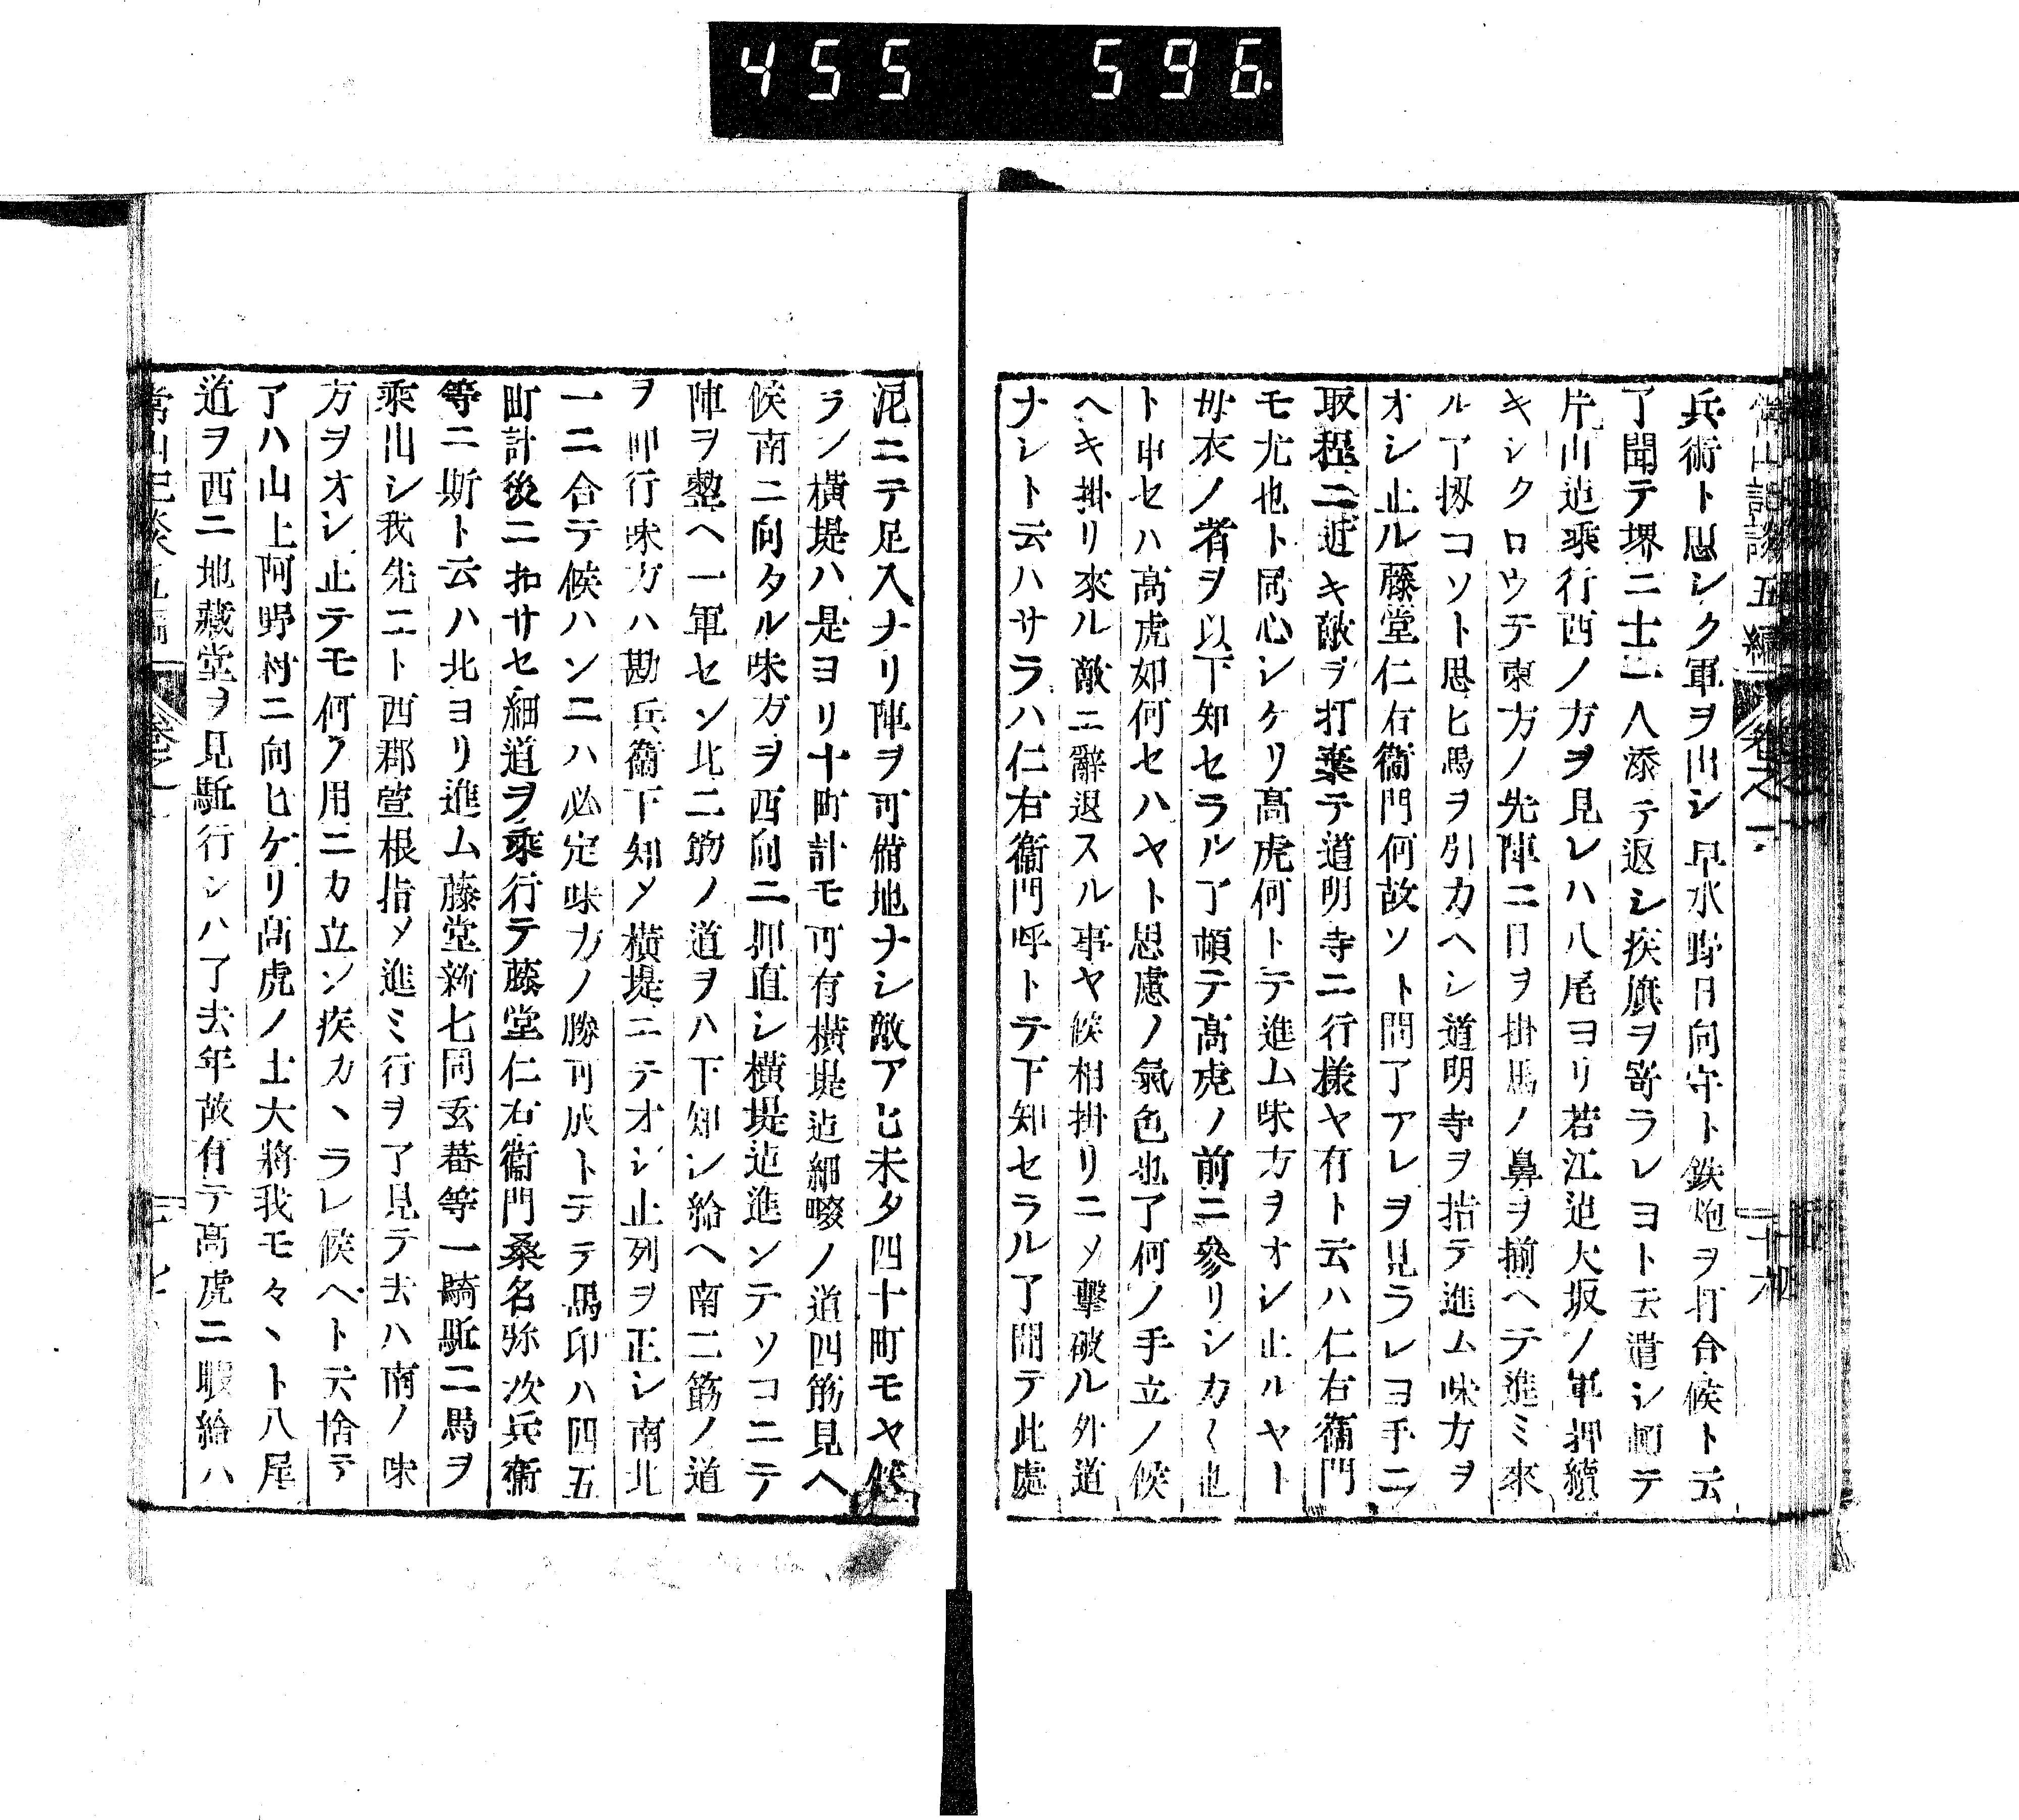 455 596.
常山記談五編 卷之六
兵術ト思シク軍ヲ出シ早水野日向守ト鉄炮ヲ打合候ト云
了聞テ堺ニ士一人添テ返シ疾旗ヲ寄ラレヨト云遣シ頓テ
片山迠乘行西ノ方ヲ見レハ八尾ヨリ若江迠大坂ノ軍押續
キシクロウテ東方ノ先陣ニ目ヲ掛馬ノ鼻ヲ揃ヘテ進ミ來
ル了扨コソト思ヒ馬ヲ引カヘシ道明寺ヲ指テ進ム味方ヲ
オシ止ル藤堂仁右衞門何故ソト問了アレヲ見ラレヨ手ニ
取程ニ近キ敵ヲ打棄テ道明寺ニ行様ヤ有ト云ハ仁右衞門
モ尤也ト同心シケリ髙虎何トテ進ム味方ヲオシ止ルヤト
母衣ノ者ヲ以下知セラル了頓テ髙虎ノ前ニ參リシカ〱也
ト申セハ髙虎如何セハヤト思慮ノ氣色也了何ノ手立ノ候
ヘキ掛リ來ル敵ニ辭退スル事ヤ候相掛リニメ擊破ル外道
ナレト云ハサラハ仁右衞門呼トテ下知セラル了聞テ此處
泥ニテ足入ナリ陣ヲ可備地ナシ敵アヒ未タ四十町モヤ候
ラン横堤ハ是ヨリ十町計モ可有横堤迠細畷ノ道四筋見ヘ
候南ニ向タル味方ヲ西向ニ押直シ横堤迠進ンテソコニテ
陣ヲ整ヘ一軍セン北二筋ノ道ヲハ下知シ給ヘ南二筋ノ道
ヲ押行味方ハ勘兵衞下知メ横堤ニテオシ止列ヲ正シ南北
一ニ合テ候ハンニハ必定味方ノ勝可成トテテ馬印ハ四五
町計後ニ扣サセ細道ヲ乘行テ藤堂仁右衞門桑名弥次兵衞
等ニ斯ト云ハ北ヨリ進ム藤堂新七同玄蕃等一騎駈ニ馬ヲ
乘出シ我先ニト西郡萱根指メ進ミ行ヲ了見テ去ハ南ノ味
方ヲオシ止テモ何ノ用ニカ立ン疾カヽラレ候ヘト云捨テ
了ハ山上阿野村ニ向ヒケリ髙虎ノ士大將我モ々ヽト八尾
道ヲ西ニ地藏堂ヲ見駈行シハ了去年故有テ髙虎ニ暇給ハ